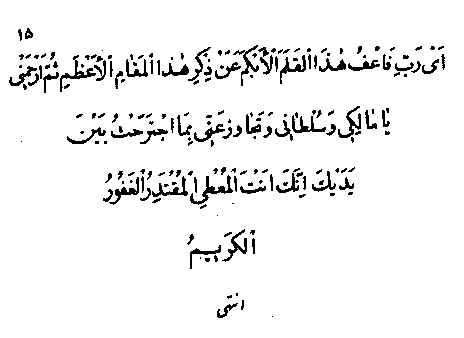 ۱۵
اَیْ رَبِّ فَاعْفُ هٰذَا الْقَلَمَ الْأَبْكَمَ عَنْ ذِكْرِ هٰذَا الْمَقَامِ الْأَعْظَمِ ثُمَّ ارْحَمْنِیْ
یَا مَالِكِی وَسُلْطَانِی وَتَجَاوَزْ عَنِّی بِمَا اجْتَرَحْتُ بَیْنَ
یَدَیْكَ اِنَّكَ اَنْتَ الْمُعْطِی الْمُقْتَدِرُ الْغَفُورُ
الْكَرِیمُ
انتهی